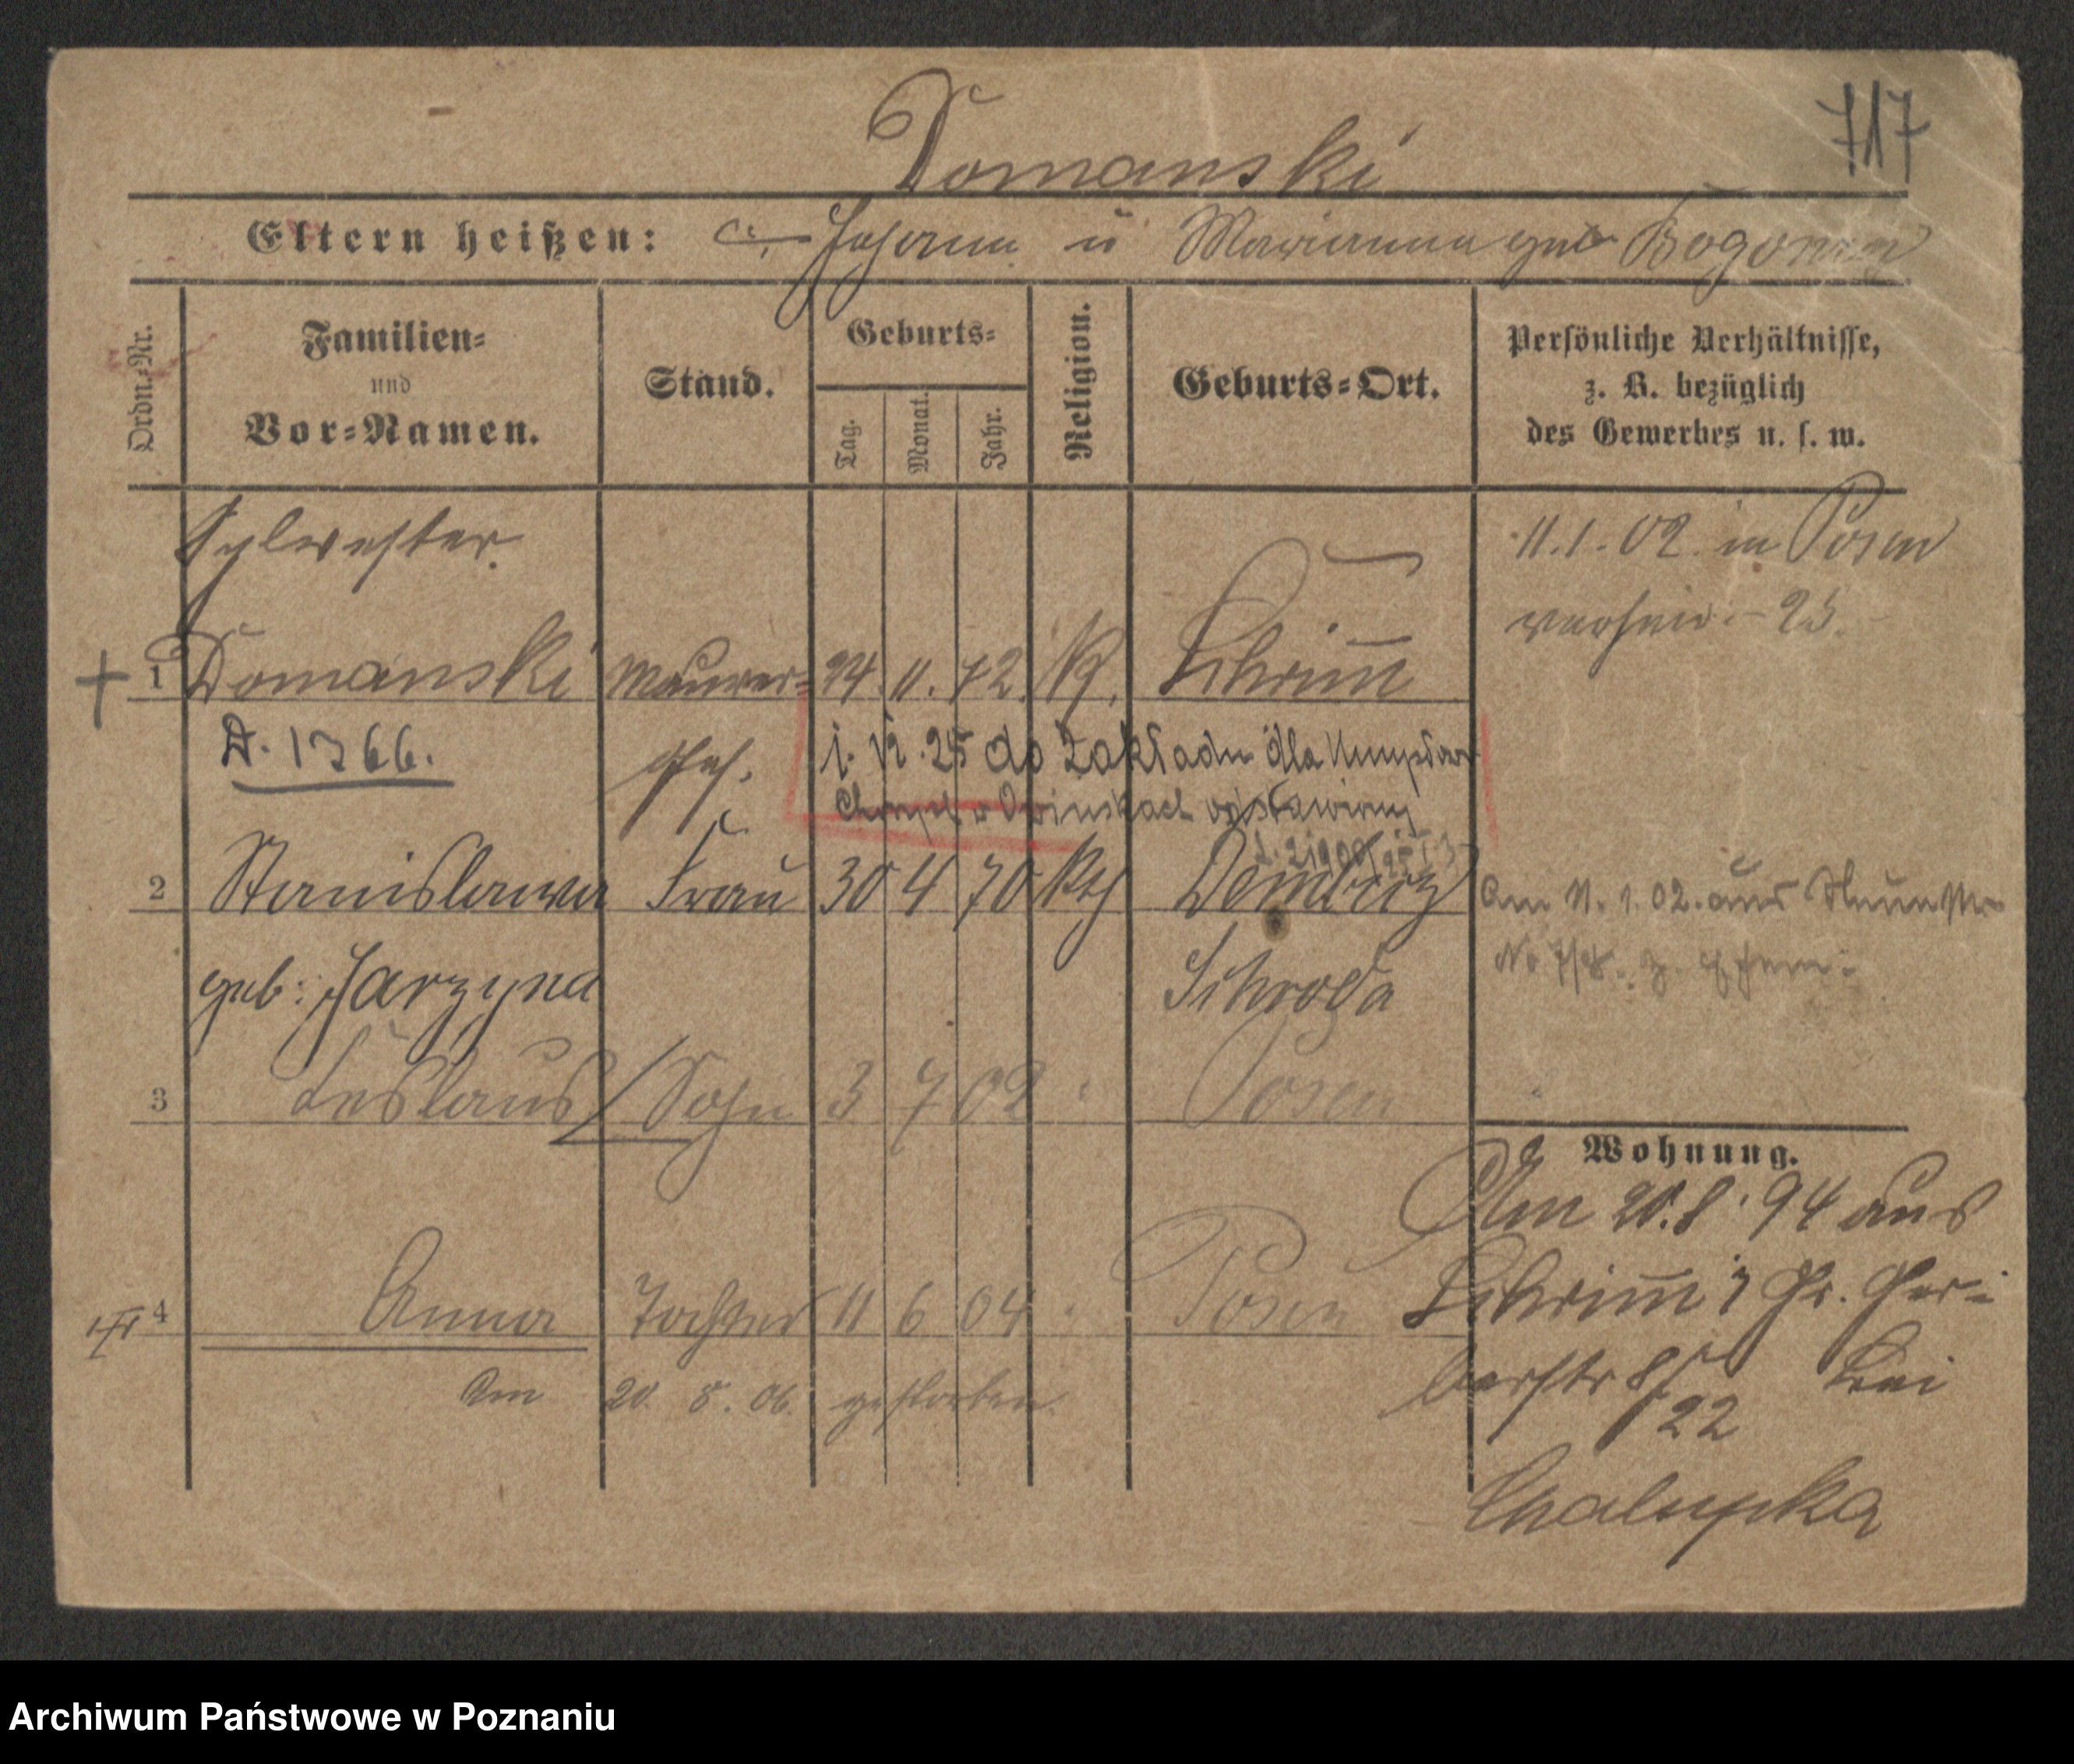 717
Domanski
Eltern heißen: Johann u Marianna geb
Ordn.-Nr.
Familien-
und
Vor-Namen.
Stand.
Geburts-
Tag.
Monat.
Jahr.
Religion.
Geburts-Ort.
Persönliche Verhältnisse,
z. B. bezüglich
des Gewerbes u. s. w.
Sylvester
11.1.02. in Posen
25.
1 Domanski Maurer- 24. 11. 72. K. Schrimm
D. 1366.
Ges. 1. VI. 25 do Zakładu dla Umysłowo
Chorych w Owinskach odstawiony
2 Stanislawa Frau 30 4 70 Kth Dembicz
Am 11. 1. 02. aus
geb: Jarzyna Schroda
3 Leslaus Sohn 3 7 02 Posen
Wohnung.
Am 20. 8. 94 aus
4 Anna Tochter 11 6 04 Posen
Schrimm Gr. Ger-
Am 20. 8. 06. gestorben
berstr 8/ bei
22
Chalupka
Archiwum Państwowe w Poznaniu